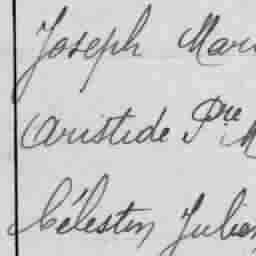 Joseph Mari
Aristide Pre M
Célestin Julien